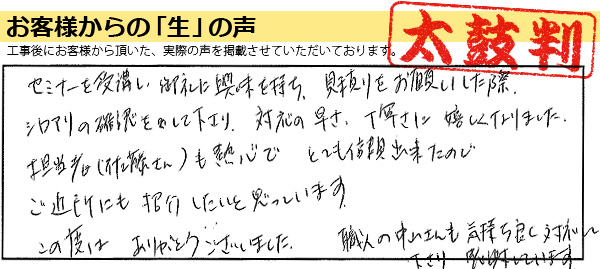 お客様からの「生」の声
工事後にお客様から頂いた、実際の声を掲載させていただいております。
太鼓判
セミナーを受講し 御社に興味を持ち、見積りをお願いした際、
シロアリの確認をして下さり、対応の早さ、丁寧さに嬉しくなりました。
担当者(佐藤さん)も熱心で とても信頼出来たので
ご近所にも紹介したいと思っています。
この度は ありがとうございました。
職人の中山さんも気持ち良く対応して
下さり 感謝しています